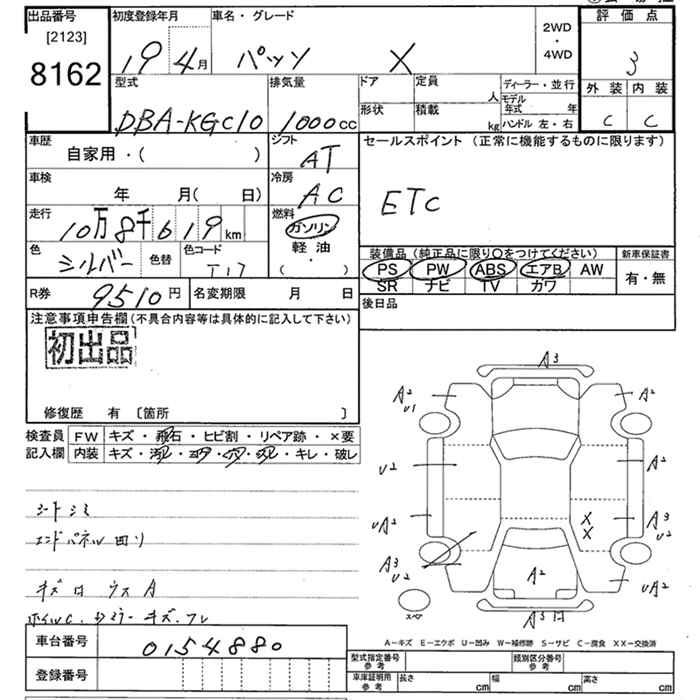 出品番号
[2123]
8162
初度登録年月
19 4月
車名・グレード
パッソ X
2WD
・
4WD
評価点
3
外装 内装
C C
型式
DBA-KGC10
排気量
1000cc
ドア
定員
人
形状
積載
kg
ディーラー・並行
モデル年式 年
ハンドル 左・右
車歴
自家用・( )
シフト
AT
車検
年 月( 日)
冷房
AC
走行
10万8千619km
燃料
ガソリン
軽油
( ・ )
色
シルバー
色替
色コード
T17
R券
9510円
名変期限 月 日
セールスポイント (正常に機能するものに限ります)
ETC
装備品 (純正品に限り○をつけてください)
PS PW ABS エアB AW
SR ナビ TV カワ
新車保証書
有・無
後日品
注意事項申告欄 (不具合内容等は具体的に記入して下さい)
初出品
修復歴 有 〔箇所 〕
検査員
記入欄
FW キズ・飛石・ヒビ割・リペア跡・×要
内装 キズ・汚れ・コゲ・穴・スレ・キレ・破レ
シートシミ
エンドパネル凹リ
キズ凹 ウス A
車台番号
0154880
登録番号
A3
A2
U1
A2
U2
A2
UA2
A3
U2
X
X
A3
U2
A2
UA2
スペア
A3凹
A-キズ E-エクボ U-凹み W-補修跡 S-サビ C-腐食 XX-交換済
型式指定番号
参考
類別区分番号
参考
車庫証明用
参考
長さ cm
幅 cm
高さ cm